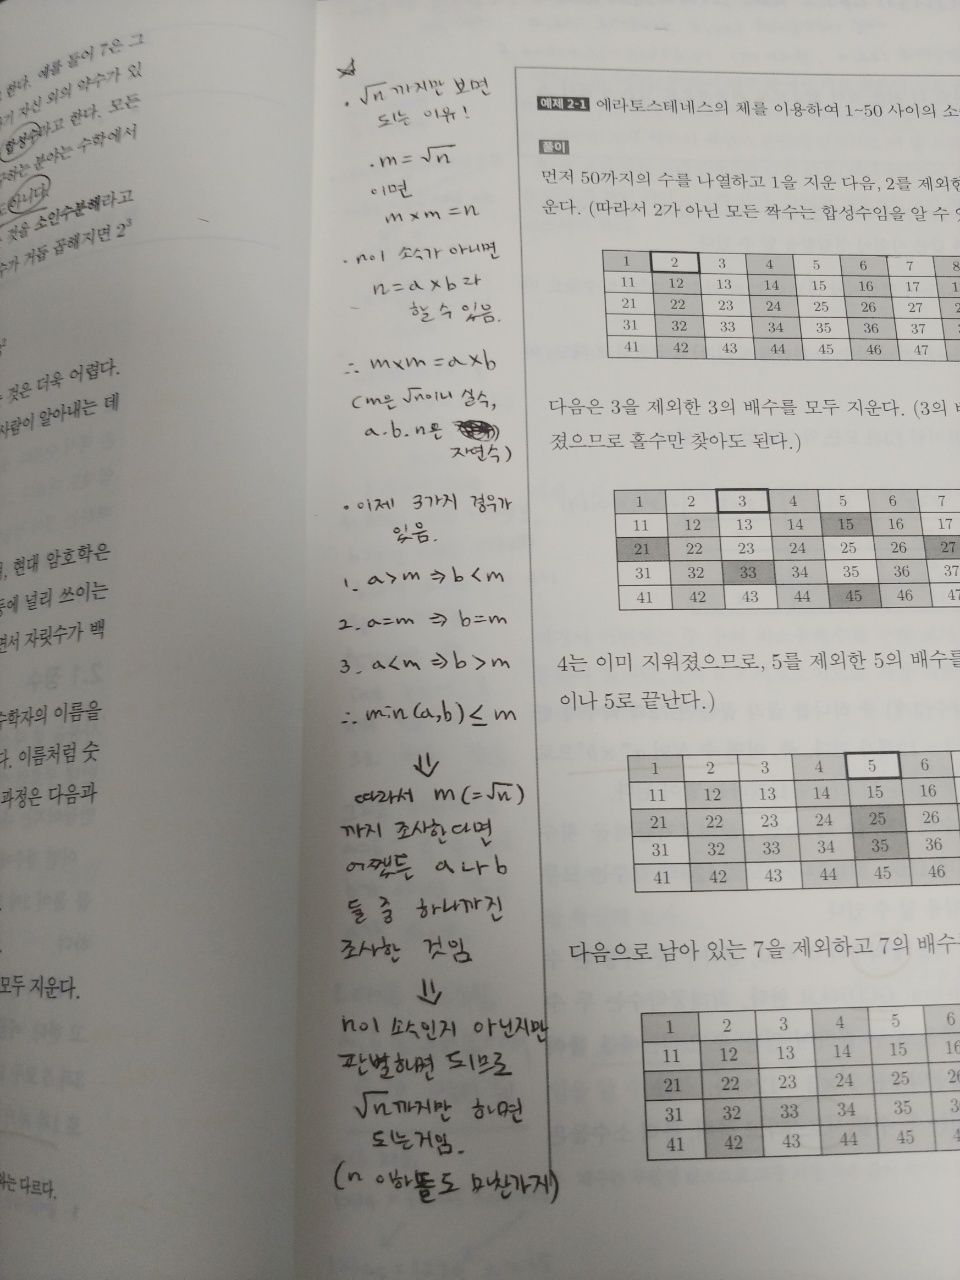 한다. 예를 들어 7은 그
자신 외의 약수가 있
합성수라고 한다. 모든
하는 분야는 수학에서
아니다.
것을 소인수분해라고
수가 거듭 곱해지면 2³
것은 더욱 어렵다.
사람이 알아내는 데
현대 암호학은
등에 널리 쓰이는
면서 자릿수가 백
수학자의 이름을
다. 이름처럼 숫
과정은 다음과
모두 지운다.
다르다.
· √n 까지만 보면
되는 이유!
· m = √n
이면
m × m = n
· n이 소수가 아니면
n = a × b 라
할 수 있음.
∴ m×m = a×b
(m은 √n이니 실수,
a.b.n은
자연수)
· 이제 3가지 경우가
있음.
1. a>m ⇒ b<m
2. a=m ⇒ b=m
3. a<m ⇒ b>m
∴ min(a,b) ≤ m
⇓
따라서 m(=√n)
까지 조사한다면
어쨌든 a나 b
둘 중 하나까진
조사한 것임
⇓
n이 소수인지 아닌지만
판별하면 되므로
√n까지만 하면
되는거임.
(n 이하들도 마찬가지)
예제 2-1 에라토스테네스의 체를 이용하여 1~50 사이의
풀이
먼저 50까지의 수를 나열하고 1을 지운 다음, 2를 제외한
운다. (따라서 2가 아닌 모든 짝수는 합성수임을 알 수
1 2 3 4 5 6 7 8
11 12 13 14 15 16 17
21 22 23 24 25 26 27
31 32 33 34 35 36 37
41 42 43 44 45 46 47
다음은 3을 제외한 3의 배수를 모두 지운다. (3의
졌으므로 홀수만 찾아도 된다.)
1 2 3 4 5 6 7
11 12 13 14 15 16 17
21 22 23 24 25 26 27
31 32 33 34 35 36 37
41 42 43 44 45 46 47
4는 이미 지워졌으므로, 5를 제외한 5의 배수를
이나 5로 끝난다.)
1 2 3 4 5 6
11 12 13 14 15 16
21 22 23 24 25 26
31 32 33 34 35 36
41 42 43 44 45 46
다음으로 남아 있는 7을 제외하고 7의 배수
1 2 3 4 5 6
11 12 13 14 15 16
21 22 23 24 25
31 32 33 34 35
41 42 43 44 45